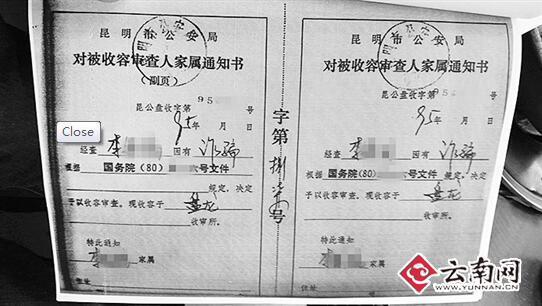 昆明市公安局
对被收容审查人家属通知书
（副页）
昆公盘收字第 95 号
95年 月 日
Close
经查 李 因有 诈骗
根据 国务院（80） 号文件
规定，决定
予以收容审查。现收容于 盘龙
收审所。
特此通知
李 家属
住址
字第 捌 号
昆明市公安局
对被收容审查人家属通知书
昆公盘收字第 95 号
95年 月 日
经查 李 因有 诈骗
根据 国务院（80） 号文件
规定，决定
予以收容审查。现收容于 盘龙
收审所。
特此通知
李 家属
住址
云南网
WWW.YUNNAN.CN